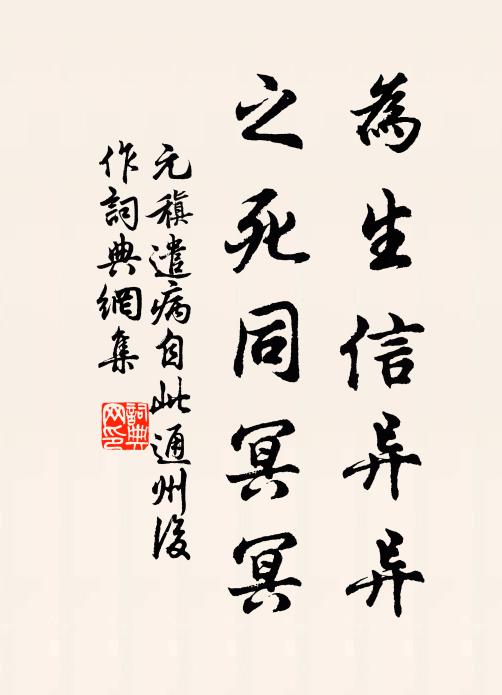 為生信异异
之死同冥冥
元稹遣病自此通州後
作詞典網集
詞典
网印